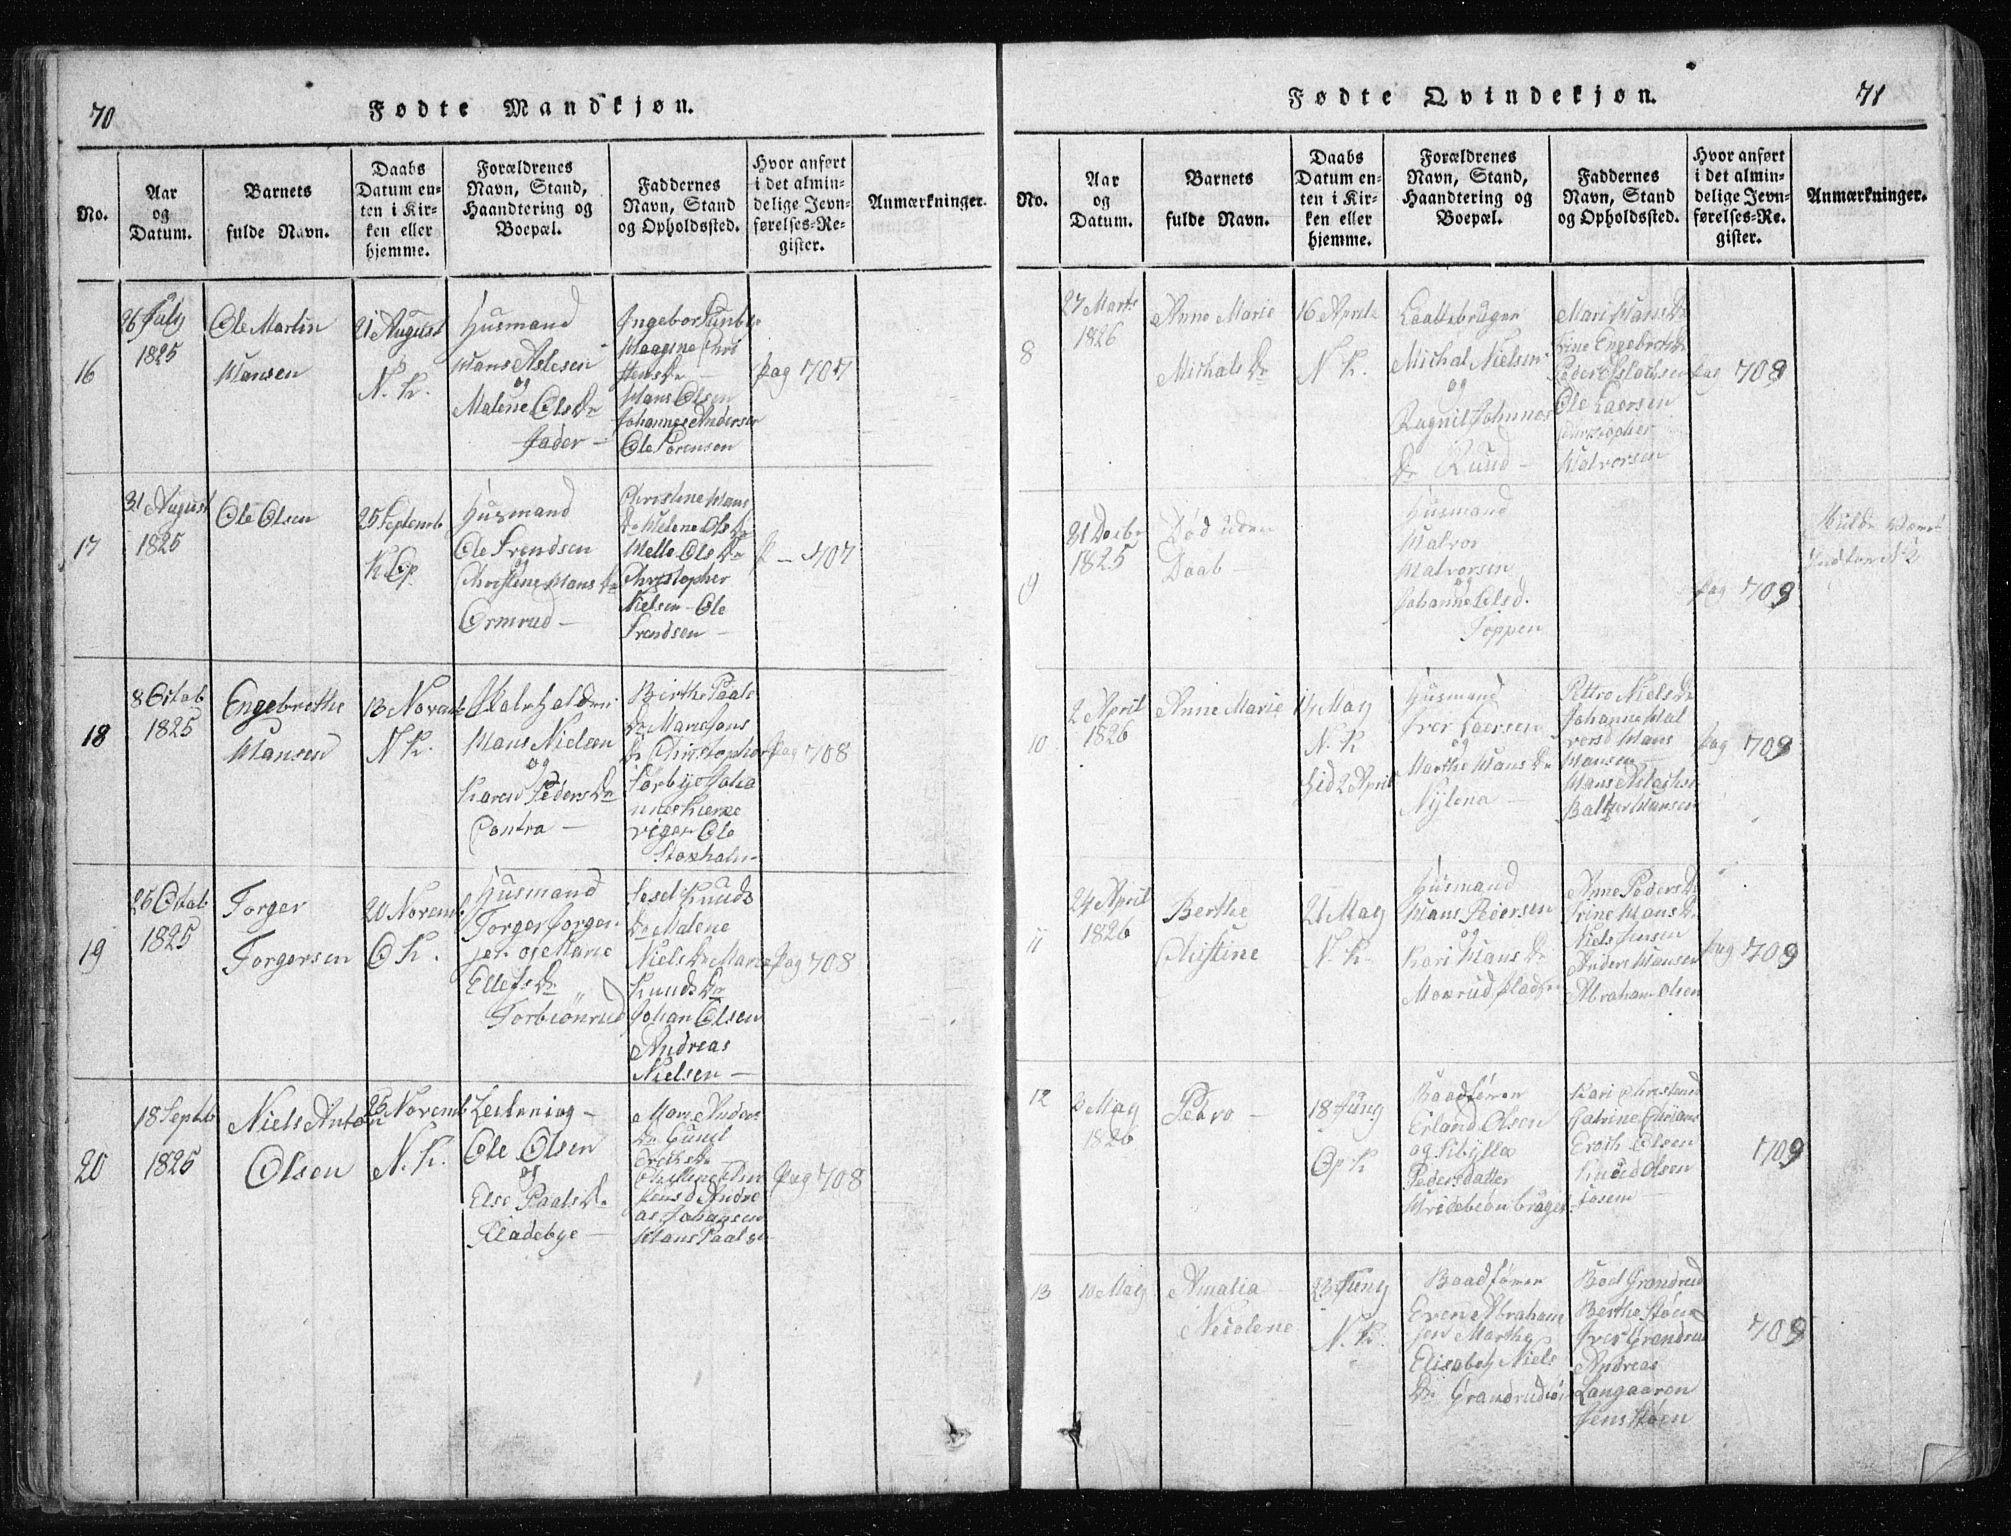 70
Fødte Mandkjøn.
No.
Aar
og
Datum.
Barnets
fulde Navn.
Daabs
Datum en-
ten i Kir-
ken eller
hjemme.
Forældrenes
Navn, Stand,
Haandtering og
Boepæl.
Faddernes
Navn, Stand
og Opholdssted.
Hvor anført
i det almin-
delige Jevn-
førelses-Re-
gister.
Anmærkninger.
16
26 July
1825
Ole Martin
Hansen
21 August
N. K.
Husmand
Hans Aslesen
og
Malene Ols Dr
Jader –
Hans Olsen
Johannes Andersen
Ole Sørensen
pag 707
17
31 August
1825
Ole Olsen
25 Septemb
K Op.
Husmand
Ole Trendsen
og
Christine Hans Dr
Ormrud –
Christine Hans
Dr Helene Ols Dr
Mette Ole Dr
Christopher
Nielsen – Ole
Trendsen –
p – 707
18
8 Octob
1825
Engebrethe
Hansen
13 Novemb
N K.
Hans Nielsen
og
Karen Peders Dr
Contra –
Birthe Paals
Dr Marie Jans
Dr Christopher
Ole
Stoxholm –
pag 708
19
25 Octob
1825
Torger
Torgersen
20 Novemb
O K.
Husmand
Torger Torger
sen og Marie
Ellefs Dr
Torbiönrud
Knuds
Dr Malene
Niels Dr Marie
Knuds Dr
Johan Olsen
Andreas
Nielsen –
pag 708
20
18 Septb
1825
Niels Anton
Olsen
25 Novemb
N. K.
Ole Olsen
og
Else Paals Dr
Fladebye –
Marie Anders
Dr Gunil
Erichs Dr
Andre
as Johansen
Hans Paalsen
pag 708
71
Fødte Qvindekjøn.
No.
Aar
og
Datum.
Barnets
fulde Navn.
Daabs
Datum en-
ten i Kir-
ken eller
hjemme.
Forældrenes
Navn, Stand,
Haandtering og
Boepæl.
Faddernes
Navn, Stand
og Opholdssted.
Hvor anført
i det almin-
delige Jevn-
førelses-Re-
gister.
Anmærkninger.
8
27 Marts
1826
Anne Marie
Michals Dr
16 Aprile
N K.
Michal Nielsen
og
Ragnil Johannes
Dr Ruud –
Mari Hans Dr
Trine Engebreths Dr
Ole Laersen
Christopher
Halvorsen
pag 708
9
31 Decbr
1825
Død uden
Daab –
Husmand
Halvor
Halvorsen
og
Johanne Olsd.
Toppen
pag 709
10
2 April
1826
Anne Marie
14 May
N. K
Husmand
Iver Laersen
og
Marthe Hans Dr
Nylena –
Johanne Hal
versd Hans
Hansen –
Baltzer Hansen
pag 709
11
24 April
1826
Berthe
Christine
21 May
N. K.
Husmand
Hans Pedersen
og
Kari Hans Dr
Moxrud pladsen
Anne Peders Dr
Trine Hans Dr
Niels Jensen
Anders Hansen
Abraham Olsen
pag 709
12
2 May
1826
Petro –
18 Juny
Op K
Baadfører
Erland Olsen
og Sibylla
Pedersdatter
Kari
Knud Olsen
709
13
10 May
Amalia
Nicolene
23 Juny
N. K.
Baadfører
Even Abraham
sen Marthe
Elisabeth Niels
Dr Grandrudøen
Boel Grandrud
Berthe Støen
Iver Grandrud
Andreas
Langaaren
Jens Støen
709